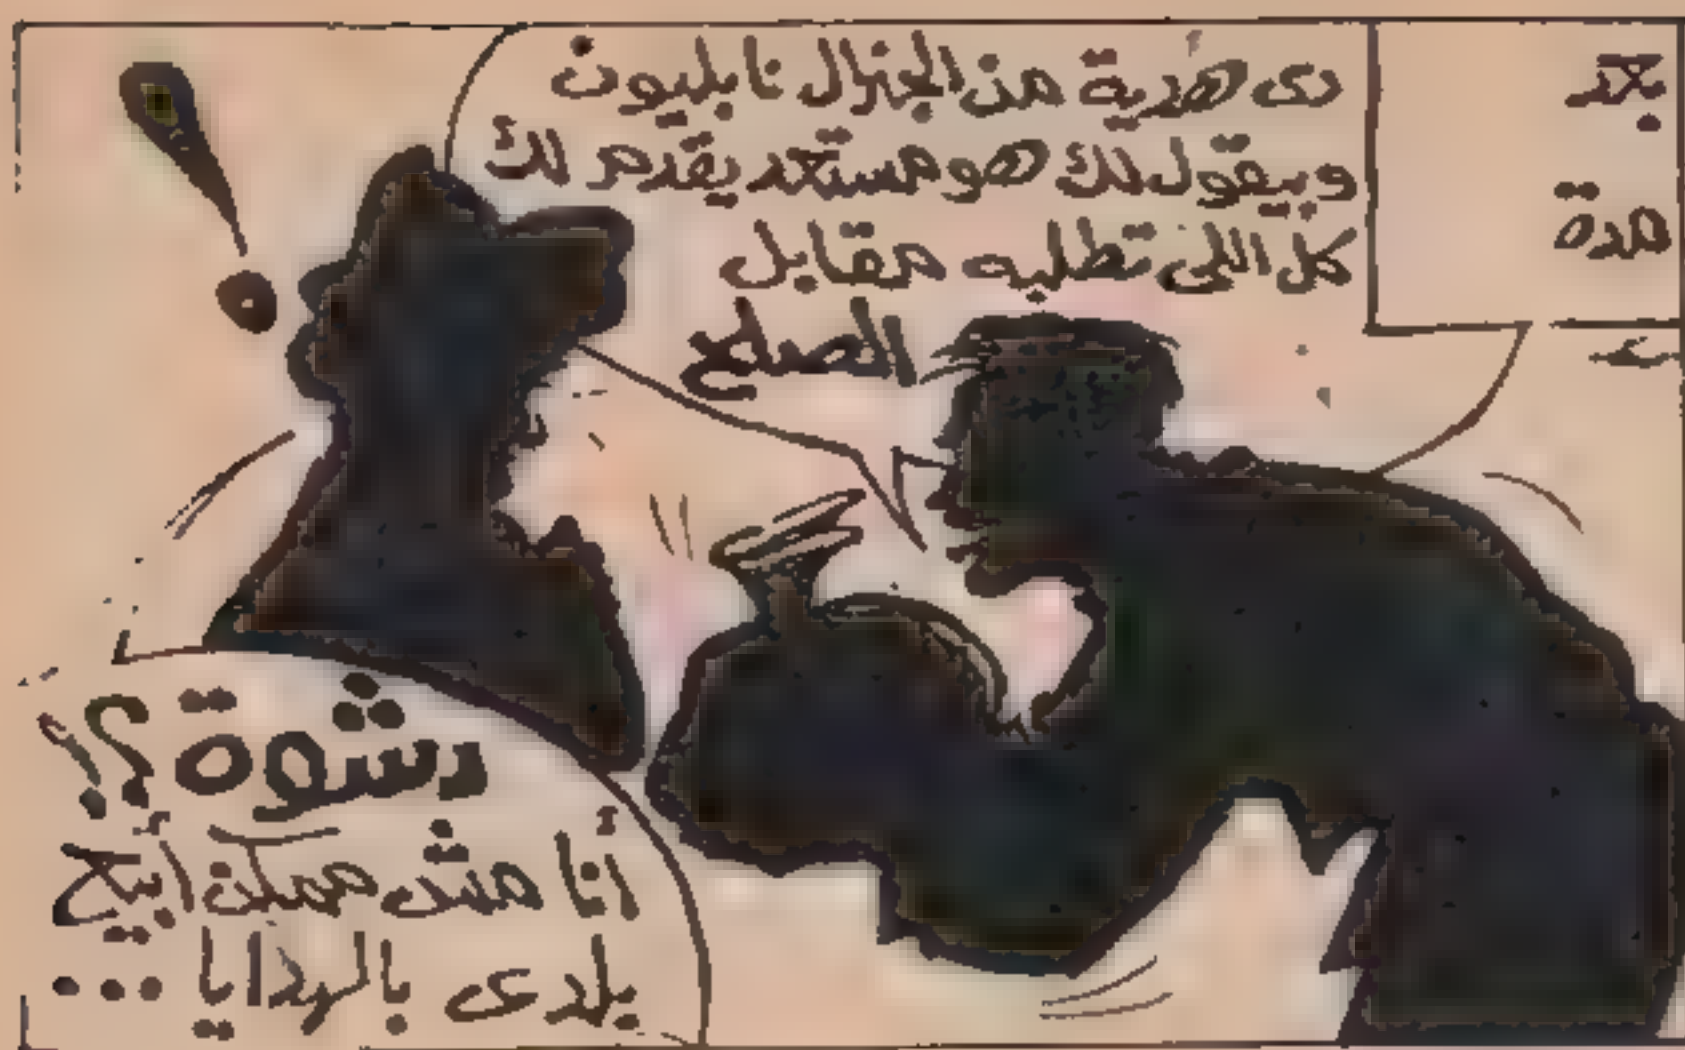 بعد
مدة
دى هدية من الجنرال نابليون
وبيقول لك هو مستعد يقدم لك
كل اللى تطلبه مقابل
الصلح
رشوة؟!
أنا مش ممكن أبيع
بلدى بالهدايا ...